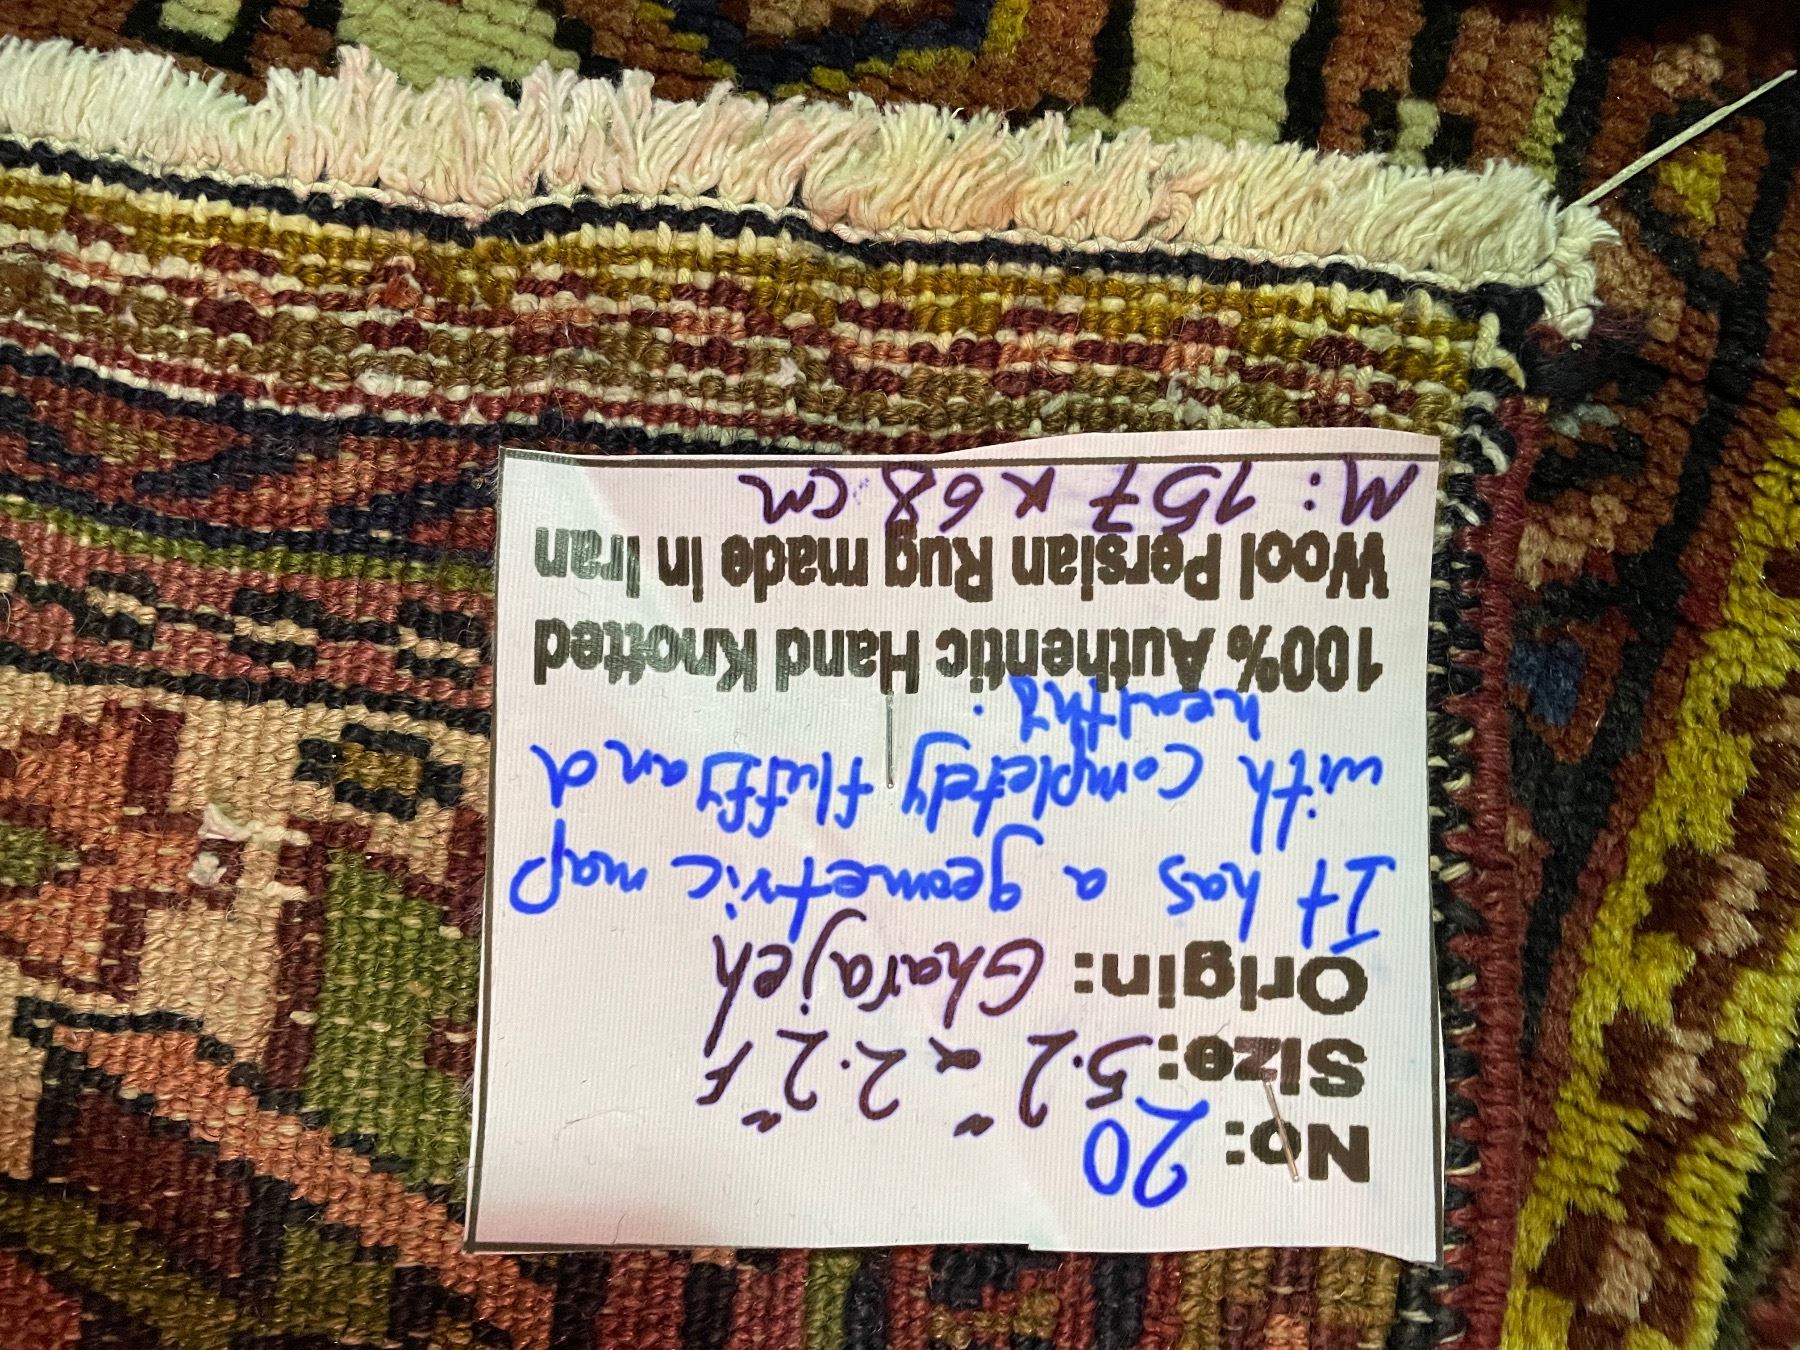 No: 20
Size: 5.2" x 2.2" F
Origin: Gharajeh
It has a geometric map
with completely fluffy and
healthy.
100% Authentic Hand Knotted
Wool Persian Rug made in Iran
M: 157 x 68 cm